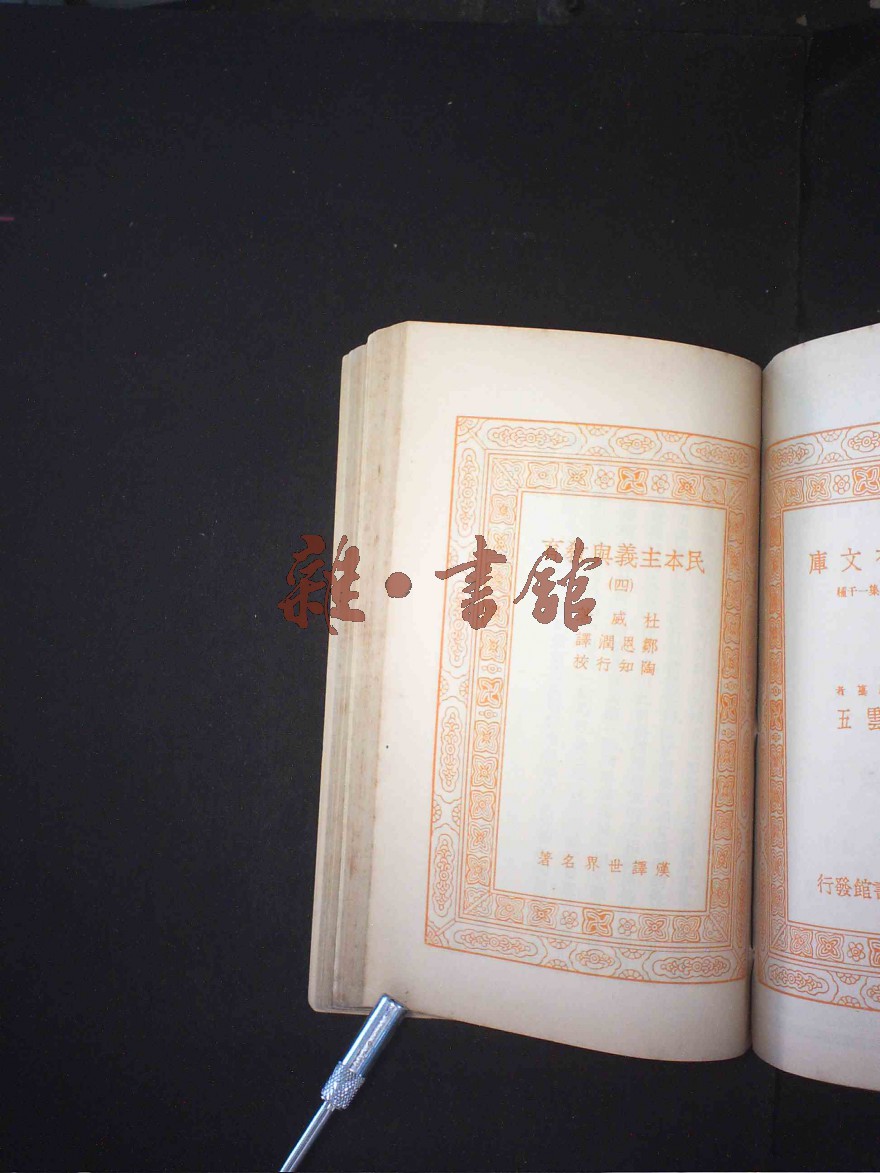 文庫
集一千種
纂者
雲五
書館發行
民本主義與教育
(四)
杜威
鄒恩潤譯
陶知行校
漢譯世界名著
雜·書館